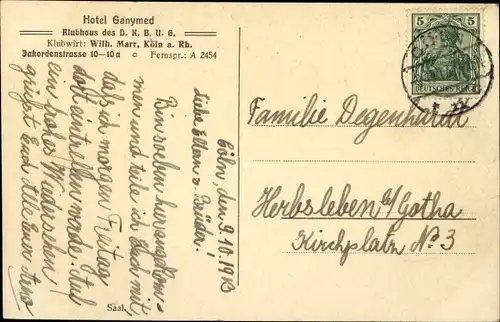 Hotel Ganymed
Klubhaus des D. K. B. U. G.
Klubwirt: Wilh. Marr, Köln a. Rh.
Jakordenstrasse 10-10a o Fernspr.: A 2454
5 5
DEUTSCHES REICH
Cöln, den 9.10.1913
Liebe Eltern u. Brüder!
Bin soeben hier angekom-
men und teile Euch mit
daß ich morgen Freitag
dort eintreffen werde. Auf
ein frohes Wiedersehen
grüßt Euch alle Euer
Saal.
Familie Degenhardt
Herbsleben b/Gotha
Kirchplatz No 3